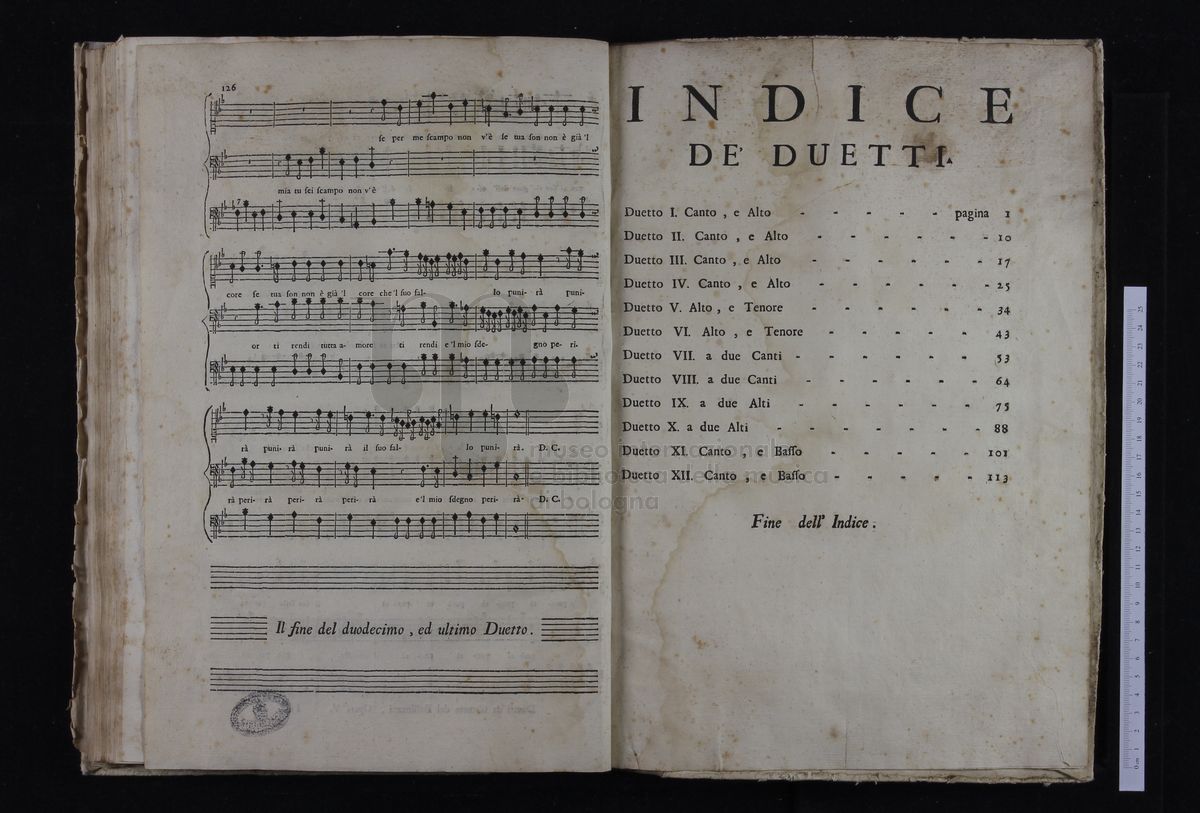 126
se per me scampo non v'è se tua son non è già 'l
mia tu sei scampo non v'è
core se tua son non è già 'l core che 'l suo fal- lo puni- rà puni-
or ti rendi tutta a- more ti rendi e 'l mio sde- gno pe- ri-
rà puni- rà puni- rà il suo fal- lo puni- rà. D. C.
rà peri- rà peri- rà peri- rà e 'l mio sdegno peri- rà- D. C.
Il fine del duodecimo, ed ultimo Duetto.
INDICE
DE' DUETTI.
Duetto I. Canto, e Alto - - - - - pagina 1
Duetto II. Canto, e Alto - - - - - - - 10
Duetto III. Canto, e Alto - - - - - - - 17
Duetto IV. Canto, e Alto - - - - - - - 25
Duetto V. Alto, e Tenore - - - - - - 34
Duetto VI. Alto, e Tenore - - - - - - 43
Duetto VII. a due Canti - - - - - - - 53
Duetto VIII. a due Canti - - - - - - 64
Duetto IX. a due Alti - - - - - - 75
Duetto X. a due Alti - - - - - - - 88
Duetto XI. Canto, e Basso - - - - - - 101
Duetto XII. Canto, e Basso - - - - - - 113
Fine dell' Indice.
museo internazionale
e biblioteca della musica
di bologna